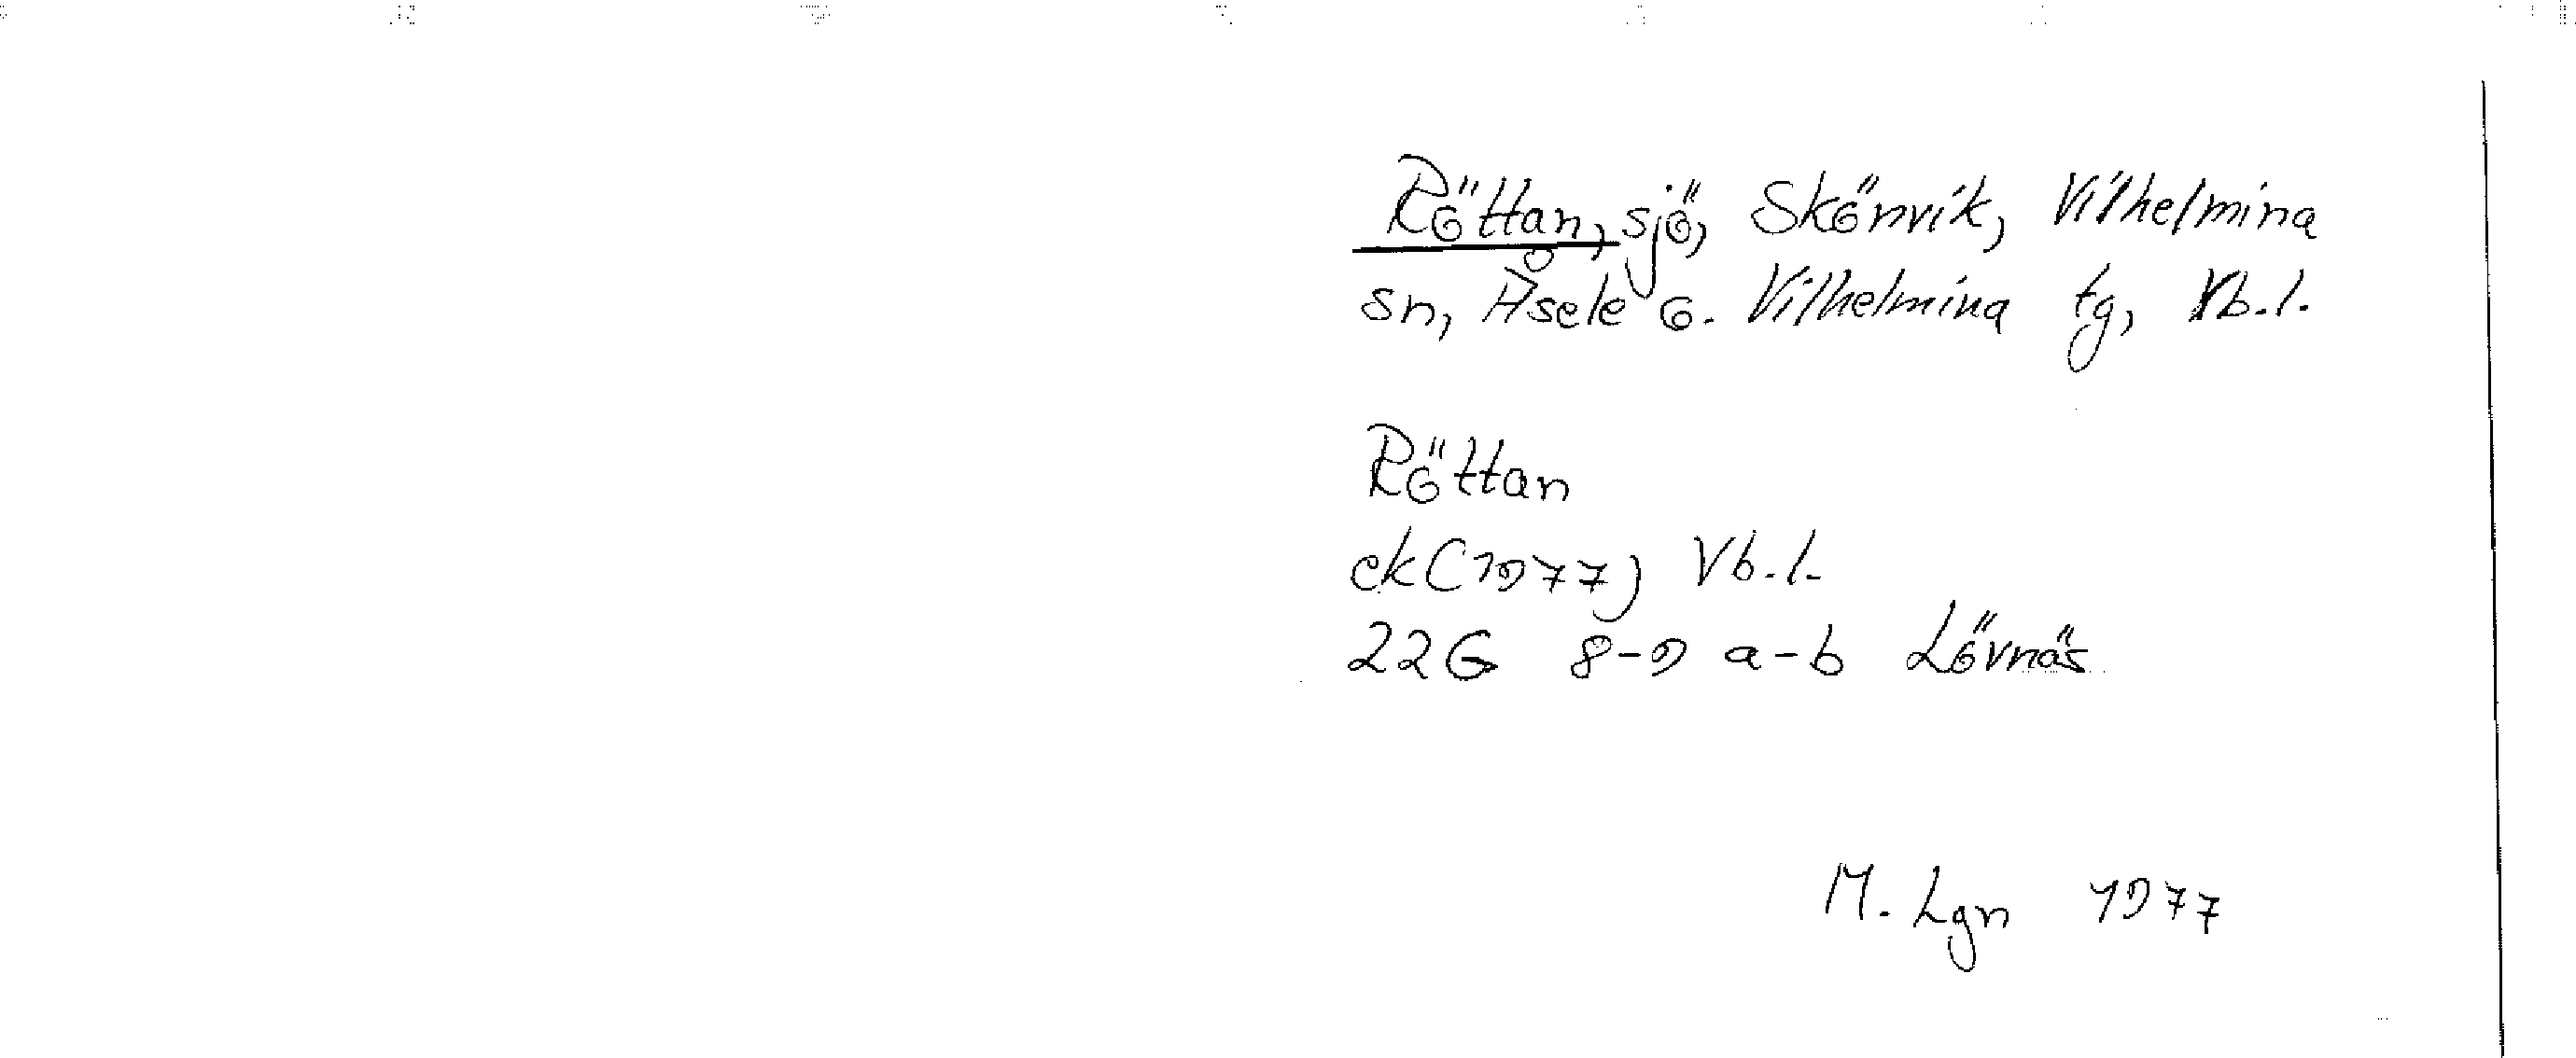 Röttan, sjö, Skönvik, Vilhelmina
sn, Åsele o. Vilhelmina tg, Vb.l.
Röttan
ek (1977) Vb.l.
22G 8-9 a-b Lövnäs
M. Lgn 1977